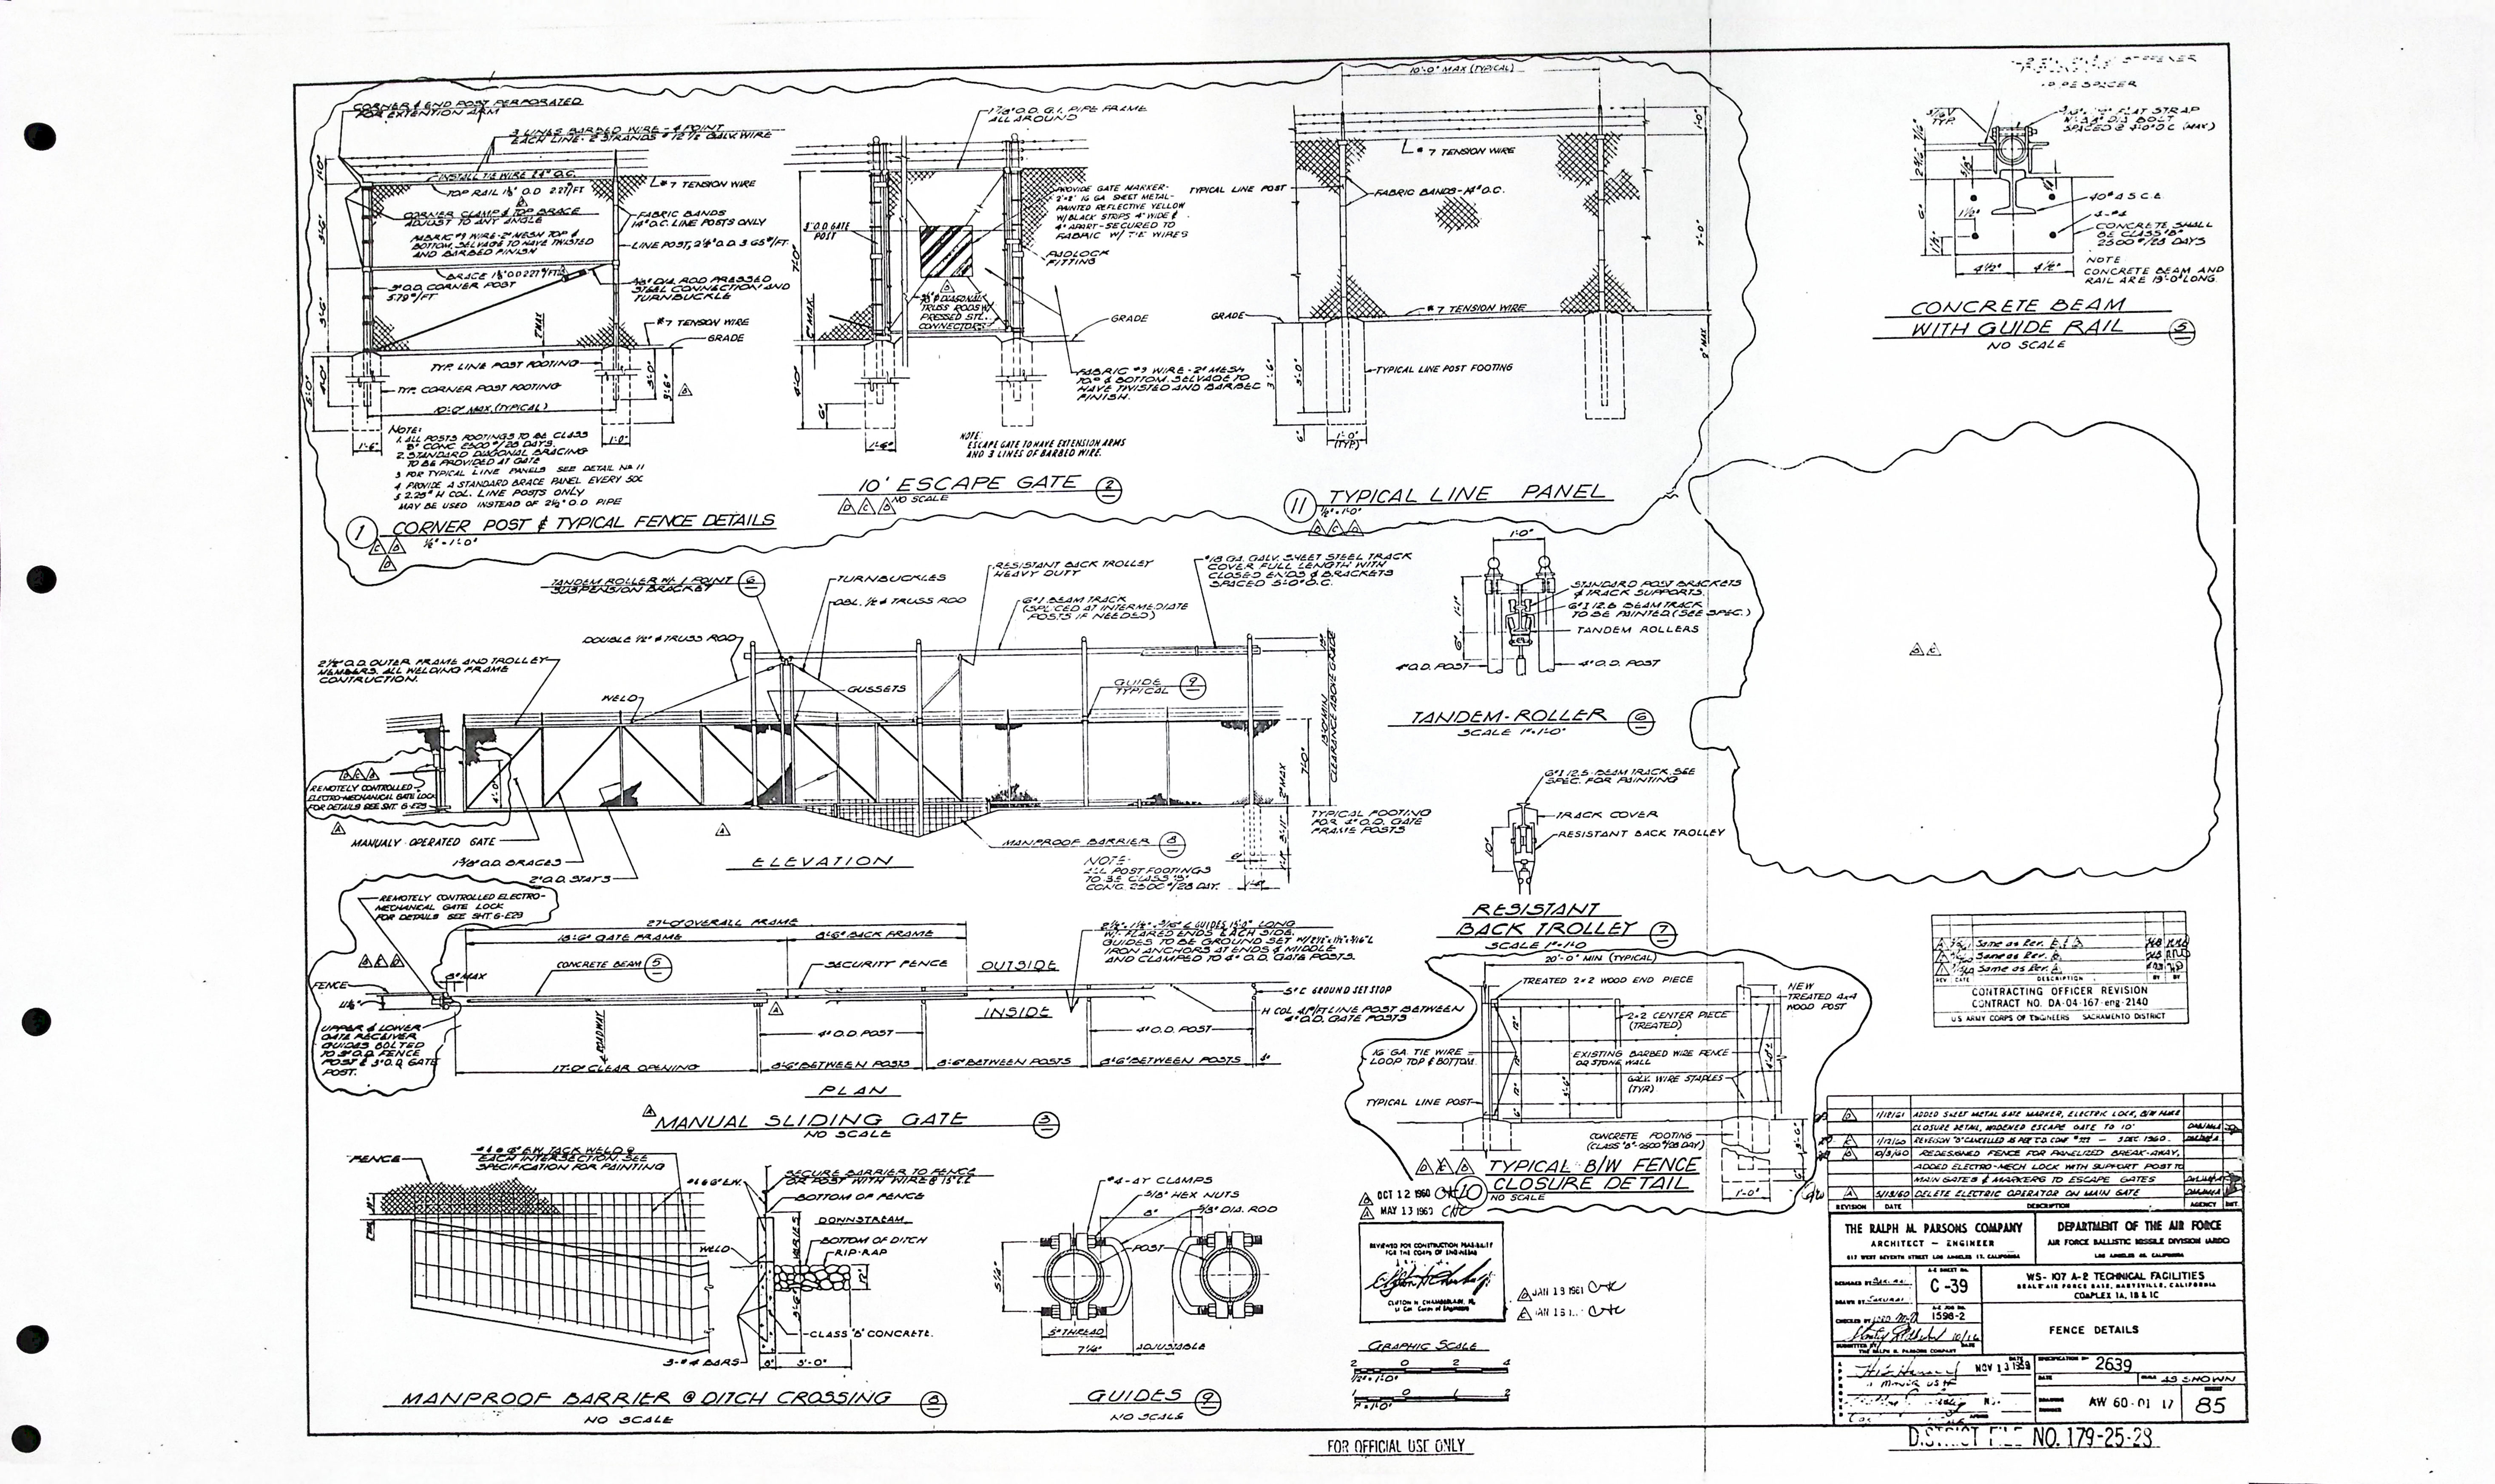 CORNER & END POST PERFORATED
FOR EXTENTION ARM
3 LINES BARBED WIRE - 4 POINT
EACH LINE - 2 STRANDS #12 1/2 GALV. WIRE
INSTALL TIE WIRE 24" O.C.
#7 TENSION WIRE
CORNER CLAMP & TOP BRACE
ADJUST TO ANY ANGLE
FABRIC BANDS
14" O.C. LINE POSTS ONLY
FABRIC #9 WIRE - 2" MESH TOP &
BOTTOM, SELVAGE TO HAVE TWISTED
AND BARBED FINISH
3" O.D. CORNER POST
5.79 #/FT
PRESSED
STEEL CONNECTION AND
TURNBUCKLE
#7 TENSION WIRE
GRADE
TYP. LINE POST FOOTING
TYP. CORNER POST FOOTING
10'-0" MAX. (TYPICAL)
1'-6"
1'-0"
NOTE:
1. ALL POSTS FOOTINGS TO BE CLASS
"B" CONC. 2500 #/28 DAYS.
2. STANDARD DIAGONAL BRACING
TO BE PROVIDED AT GATE
3 FOR TYPICAL LINE PANELS SEE DETAIL No 11
4 PROVIDE A STANDARD BRACE PANEL EVERY
5 2.25" H COL. LINE POSTS ONLY
MAY BE USED INSTEAD OF 2 1/2" O.D PIPE
1 CORNER POST & TYPICAL FENCE DETAILS
1/2" = 1'-0"
1 7/8" O.D. G.I. PIPE FRAME
ALL AROUND
PROVIDE GATE MARKER-
2'x2' 16 GA SHEET METAL-
PAINTED REFLECTIVE YELLOW
W/BLACK STRIPS 4" WIDE &
4" APART - SECURED TO
FABRIC W/ TIE WIRES
3" O.D. GATE
POST
7'-0"
2" MAX
PADLOCK
FITTING
DIAGONAL
TRUSS RODS W/
PRESSED STL.
CONNECTORS
GRADE
FABRIC #9 WIRE - 2" MESH
TOP & BOTTOM. SELVAGE TO
HAVE TWISTED AND BARBED
FINISH.
4'-0"
6"
1'-6"
NOTE:
ESCAPE GATE TO HAVE EXTENSION ARMS
AND 3 LINES OF BARBED WIRE.
10' ESCAPE GATE 2
NO SCALE
10'-0" MAX (TYPICAL)
#7 TENSION WIRE
TYPICAL LINE POST
FABRIC BANDS - 14" O.C.
1'-0"
7'-0"
2" MAX
GRADE
#7 TENSION WIRE
TYPICAL LINE POST FOOTING
3'-6"
3'-0"
6"
1'-0"
(TYP)
11 TYPICAL LINE PANEL
1/2" = 1'-0"
SPACER
3/16 V
TYP.
FLAT STRAP
DIA BOLT
SPACED @ 4'-0" O.C. (MAX)
CONCRETE SHALL
BE CLASS "B"
2500 #/28 DAYS
4 1/2" 4 1/2"
NOTE
CONCRETE BEAM AND
RAIL ARE 19'-0" LONG.
CONCRETE BEAM
WITH GUIDE RAIL 5
NO SCALE
TANDEM ROLLER W/ 1 POINT
SUSPENSION BRACKET 6
TURNBUCKLES
DBL. 1/2 φ TRUSS ROD
RESISTANT BACK TROLLEY
HEAVY DUTY
6" I BEAM TRACK
(SPLICED AT INTERMEDIATE
POSTS IF NEEDED)
#18 GA. GALV. SHEET STEEL TRACK
COVER FULL LENGTH WITH
CLOSED ENDS & BRACKETS
SPACED 5'-0" O.C.
DOUBLE 1/2" φ TRUSS ROD
2 1/2" O.D. OUTER FRAME AND TROLLEY
MEMBERS. ALL WELDING FRAME
CONTRUCTION.
WELD
GUSSETS
GUIDE
TYPICAL 9
CLEARANCE ABOVE GRADE
7'-0"
2" MAX
REMOTELY CONTROLLED
ELECTRO-MECHANICAL GATE LOCK
FOR DETAILS SEE SHT. G-E29
4'-0"
MANUALY OPERATED GATE
1 5/8" O.D. BRACES
2" O.D. STAYS
MANPROOF BARRIER 8
TYPICAL FOOTING
FOR 4" O.D. GATE
FRAME POSTS
NOTE-
ALL POST FOOTINGS
TO BE CLASS "B"
CONC. 2500 #/28 DAY.
ELEVATION
1'-0"
STANDARD POST BRACKETS
& TRACK SUPPORTS.
6" I 12.5 BEAM TRACK
TO BE PAINTED (SEE SPEC.)
TANDEM ROLLERS
4" O.D. POST
4" O.D. POST
TANDEM-ROLLER 6
SCALE 1"=1'-0"
6" I 12.5 BEAM TRACK, SEE
SPEC. FOR PAINTING
TRACK COVER
RESISTANT BACK TROLLEY
10"
RESISTANT
BACK TROLLEY 7
SCALE 1"=1'-0
REMOTELY CONTROLLED ELECTRO-
MECHANICAL GATE LOCK
FOR DETAILS SEE SHT. G-E29
27'-0" OVERALL FRAME
18'-6" GATE FRAME
8'-6" BACK FRAME
GUIDES 15'-0" LONG
W/ FLARED ENDS EACH SIDE.
GUIDES TO BE GROUND SET W/ 2 1/2" x 1 1/2" x 3/16" L
IRON ANCHORS AT ENDS & MIDDLE
AND CLAMPED TO 4" O.D. GATE POSTS.
CONCRETE BEAM 5
SECURITY FENCE
OUTSIDE
INSIDE
FENCE
UPPER & LOWER
GATE RECEIVER
GUIDES BOLTED
TO 3" O.D. FENCE
POST & 3" O.D. GATE
POST.
℄ ROADWAY
17'-0" CLEAR OPENING
4" O.D. POST
4" O.D. POST
8'-6" BETWEEN POSTS
8'-6" BETWEEN POSTS
8'-6" BETWEEN POSTS
5" C GROUND SET STOP
H COL 4.1#/FT LINE POST BETWEEN
4" O.D. GATE POSTS
PLAN
MANUAL SLIDING GATE 3
NO SCALE
20'-0" MIN (TYPICAL)
TREATED 2x2 WOOD END PIECE
NEW
TREATED 4x4
WOOD POST
2x2 CENTER PIECE
(TREATED)
16 GA. TIE WIRE
LOOP TOP & BOTTOM.
EXISTING BARBED WIRE FENCE
OR STONE WALL
GALV. WIRE STAPLES
(TYP.)
TYPICAL LINE POST
CONCRETE FOOTING
(CLASS "B"-2500 #/28 DAY)
1'-0"
TYPICAL B/W FENCE
CLOSURE DETAIL
10 NO SCALE
Same as Rev.
Same as Rev.
Same as Rev.
REV DATE DESCRIPTION BY BY
CONTRACTING OFFICER REVISION
CONTRACT NO. DA-04-167-eng-2140
US ARMY CORPS OF ENGINEERS SACRAMENTO DISTRICT
FENCE
#4 @ 6" E.W. TACK WELD @
EACH INTERSECTION. SEE
SPECIFICATION FOR PAINTING
#4 @ 6" E.W.
SECURE BARRIER TO FENCE
OR POST WITH WIRE @
BOTTOM OF FENCE
DOWNSTREAM
BOTTOM OF DITCH
RIP-RAP
WELD
CLASS "B" CONCRETE.
3-#4 BARS
3'-0"
MANPROOF BARRIER @ DITCH CROSSING 8
NO SCALE
CLAMPS
5/8" HEX NUTS
5/8" DIA. ROD
POST
5" THREAD
7 1/4"
ADJUSTABLE
GUIDES 9
NO SCALE
OCT 12 1960
MAY 13 1960
REVIEWED FOR CONSTRUCTION FEASIBILITY
FOR THE CORPS OF ENGINEERS
CLIFTON H. CHAMBERLAIN, JR.
Lt Col Corps of Engineers
JAN 13 1961
GRAPHIC SCALE
2 0 2 4
1/2" = 1'-0"
1 0 1 2
1" = 1'-0"
D 1/12/61 ADDED SHEET METAL GATE MARKER, ELECTRIC LOCK, B/W FENCE
CLOSURE DETAIL, WIDENED ESCAPE GATE TO 10'
REVISION "B" CANCELLED AS PER T.D. CONF - 3 DEC. 1960.
B 10/3/60 REDESIGNED FENCE FOR PANELIZED BREAK-AWAY,
ADDED ELECTRO-MECH LOCK WITH SUPPORT POST TO
MAIN GATES & MARKERS TO ESCAPE GATES
A 5/13/60 DELETE ELECTRIC OPERATOR ON MAIN GATE
REVISION DATE DESCRIPTION AGENCY INIT.
THE RALPH M. PARSONS COMPANY
ARCHITECT - ENGINEER
617 WEST SEVENTH STREET LOS ANGELES 17, CALIFORNIA
DEPARTMENT OF THE AIR FORCE
AIR FORCE BALLISTIC MISSILE DIVISION (ARDC)
LOS ANGELES 45, CALIFORNIA
DRAWN BY SAKURAI
A-E SHEET NO.
C-39
A-E JOB NO.
1598-2
WS-107 A-2 TECHNICAL FACILITIES
BEALE AIR FORCE BASE, MARYSVILLE, CALIFORNIA
COMPLEX 1A, 1B & 1C
FENCE DETAILS
NOV 13 1959
SPECIFICATION No 2639
SCALE AS SHOWN
AW 60-01-17
85
DISTRICT FILE NO. 179-25-28
FOR OFFICIAL USE ONLY